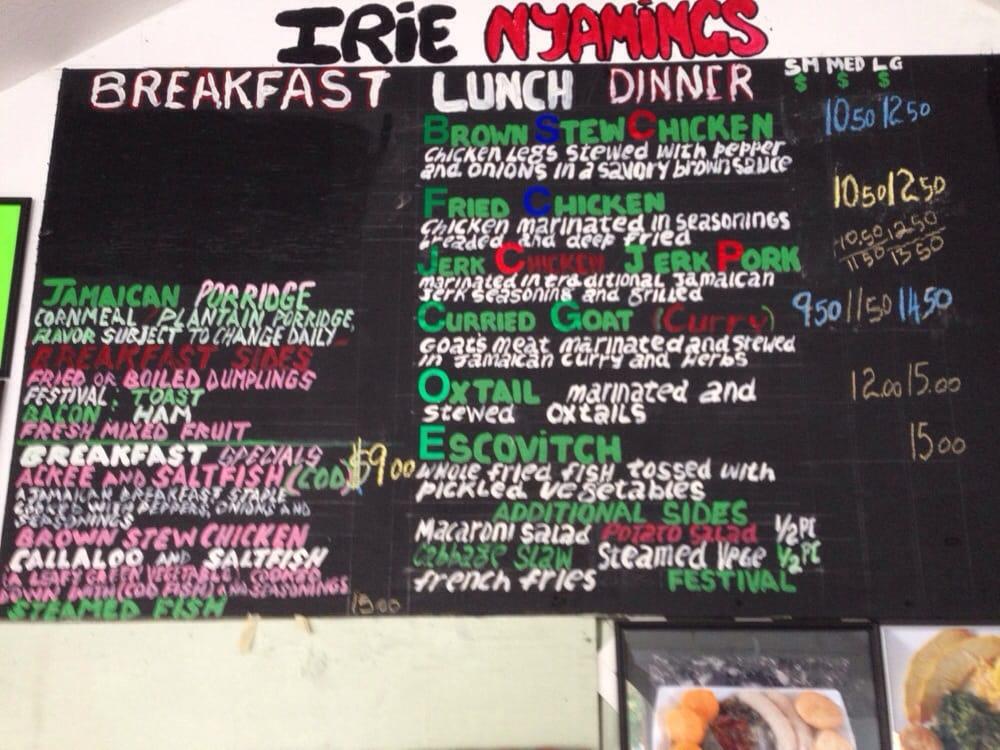 IRIE NYAMINGS
BREAKFAST LUNCH DINNER SM MED LG
$ $ $
JAMAICAN PORRIDGE
CORNMEAL PLANTAIN PORRIDGE,
FLAVOR SUBJECT TO CHANGE DAILY
BREAKFAST SIDES
FRIED OR BOILED DUMPLINGS
FESTIVAL: TOAST
BACON: HAM
FRESH MIXED FRUIT
BREAKFAST SPECIALS
ACKEE AND SALTFISH (COD) $9 00
A JAMAICAN BREAKFAST STAPLE
COOKED WITH PEPPERS, ONIONS AND
SEASONINGS
BROWN STEW CHICKEN
CALLALOO AND SALTFISH
A LEAFY GREEN VEGETABLE COOKED
DOWN WITH (COD FISH) AND SEASONINGS
STEAMED FISH 15 00
BROWN STEW CHICKEN 10 50 12 50
Chicken Legs stewed with pepper
and onions in a savory brown sauce
FRIED CHICKEN 10 50 12 50
Chicken marinated in seasonings
breaded and deep fried
10.50 12 50
JERK CHICKEN JERK PORK 11 50 13 50
marinated in traditional Jamaican
Jerk seasoning and grilled
CURRIED GOAT (Curry) 9 50 11 50 14 50
goats meat marinated and stewed
in Jamaican curry and herbs
OXTAIL marinated and 12.00 15.00
stewed oxtails
ESCOVITCH 15 00
whole fried fish tossed with
pickled vegetables
ADDITIONAL SIDES
Macaroni Salad Potato Salad 1/2 PT
Cabbage Slaw Steamed Vege 1/2 PT
french fries FESTIVAL